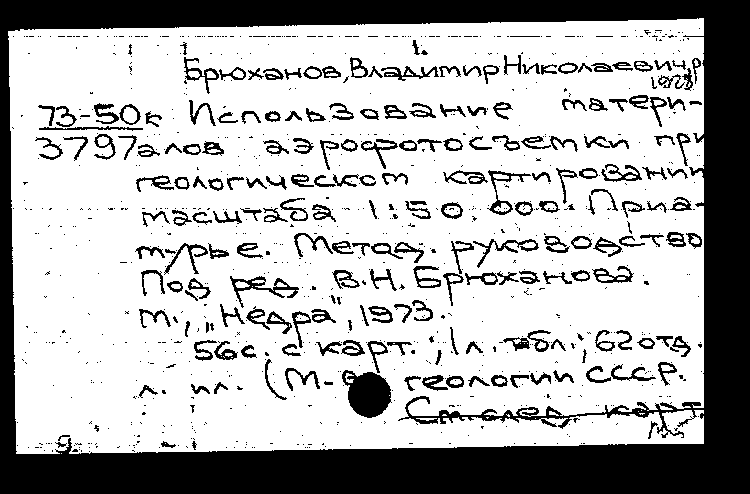 1.
Брюханов, Владимир Николаевич, р
1928
73-50к Использование матери-
3797 алов аэрофотосъемки при
геологическом картировании
масштаба 1:50.000. Приа-
мурье. Метод. руководство
Под ред. В.Н. Брюханова.
М., „Недра", 1973.
56с. с карт.; 1л. табл.; 62 отд.
л. ил. (М-во геологии СССР.
См. след. карт.
9